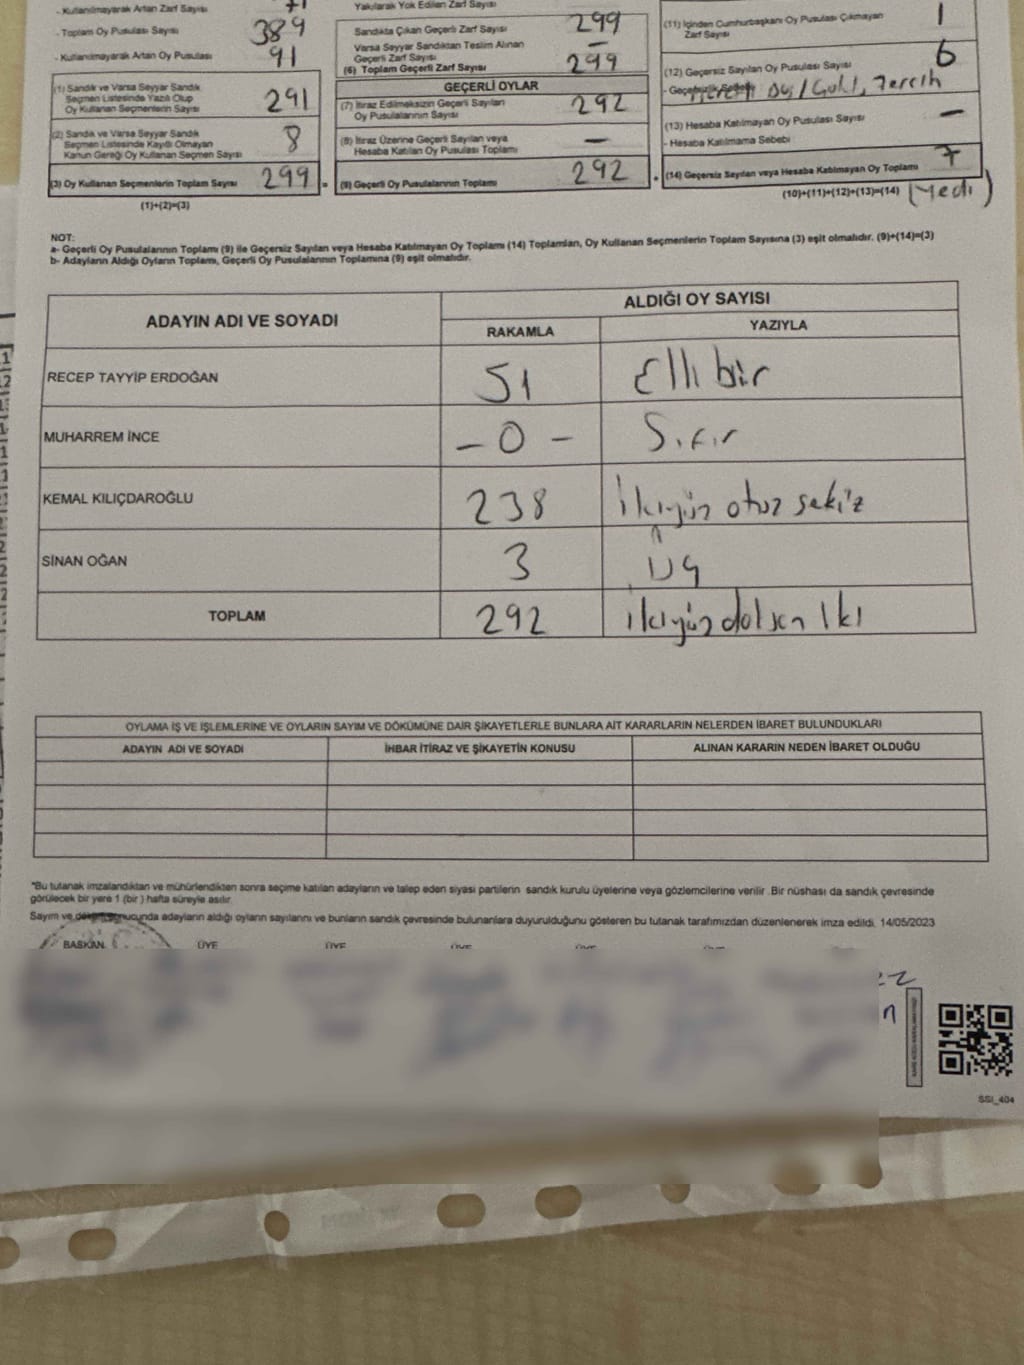 - Kullanılmayarak Artan Zarf Sayısı 71
- Toplam Oy Pusulası Sayısı 389
- Kullanılmayarak Artan Oy Pusulası 91
(1) Sandık ve Varsa Seyyar Sandık
Seçmen Listesinde Yazılı Olup
Oy Kullanan Seçmenlerin Sayısı 291
(2) Sandık ve Varsa Seyyar Sandık
Seçmen Listesinde Kaydı Olmayan
Kanun Gereği Oy Kullanan Seçmen Sayısı 8
(3) Oy Kullanan Seçmenlerin Toplam Sayısı 299
(1)+(2)=(3)
=
Yakılarak Yok Edilen Zarf Sayısı
Sandıkta Çıkan Geçerli Zarf Sayısı 299
Varsa Seyyar Sandıktan Teslim Alınan
Geçerli Zarf Sayısı –
(6) Toplam Geçerli Zarf Sayısı 299
GEÇERLİ OYLAR
(7) İtiraz Edilmeksizin Geçerli Sayılan
Oy Pusulalarının Sayısı 292
(8) İtiraz Üzerine Geçerli Sayılan veya
Hesaba Katılan Oy Pusulası Toplamı –
(9) Geçerli Oy Pusulalarının Toplamı 292
(11) İçinden Cumhurbaşkanı Oy Pusulası Çıkmayan
Zarf Sayısı 1
(12) Geçersiz Sayılan Oy Pusulası Sayısı 6
- Geçersizlik Sebebi Tercih
(13) Hesaba Katılmayan Oy Pusulası Sayısı –
- Hesaba Katılmama Sebebi
(14) Geçersiz Sayılan veya Hesaba Katılmayan Oy Toplamı 7
(10)+(11)+(12)+(13)=(14) (Yedi)
NOT:
a- Geçerli Oy Pusulalarının Toplamı (9) ile Geçersiz Sayılan veya Hesaba Katılmayan Oy Toplamı (14) Toplamları, Oy Kullanan Seçmenlerin Toplam Sayısına (3) eşit olmalıdır. (9)+(14)=(3)
b- Adayların Aldığı Oyların Toplamı, Geçerli Oy Pusulalarının Toplamına (9) eşit olmalıdır.
ADAYIN ADI VE SOYADI
ALDIĞI OY SAYISI
RAKAMLA YAZIYLA
RECEP TAYYİP ERDOĞAN 51 Elli bir
MUHARREM İNCE – 0 – Sıfır
KEMAL KILIÇDAROĞLU 238 ikiyüz otuz sekiz
SİNAN OĞAN 3 Üç
TOPLAM 292 ikiyüz doksan iki
OYLAMA İŞ VE İŞLEMLERİNE VE OYLARIN SAYIM VE DÖKÜMÜNE DAİR ŞİKAYETLERLE BUNLARA AİT KARARLARIN NELERDEN İBARET BULUNDUKLARI
ADAYIN ADI VE SOYADI İHBAR İTİRAZ VE ŞİKAYETİN KONUSU ALINAN KARARIN NEDEN İBARET OLDUĞU
*Bu tutanak imzalandıktan ve mühürlendikten sonra seçime katılan adayların ve talep eden siyasi partilerin sandık kurulu üyelerine veya gözlemcilerine verilir. Bir nüshası da sandık çevresinde
görülecek bir yere 1 (bir ) hafta süreyle asılır.
Sayım ve döküm sonucunda adayların aldığı oyların sayılarını ve bunların sandık çevresinde bulunanlara duyurulduğunu gösteren bu tutanak tarafımızdan düzenlenerek imza edildi. 14/05/2023
BAŞKAN ÜYE ÜYE ÜYE ÜYE ÜYE
SSI_404